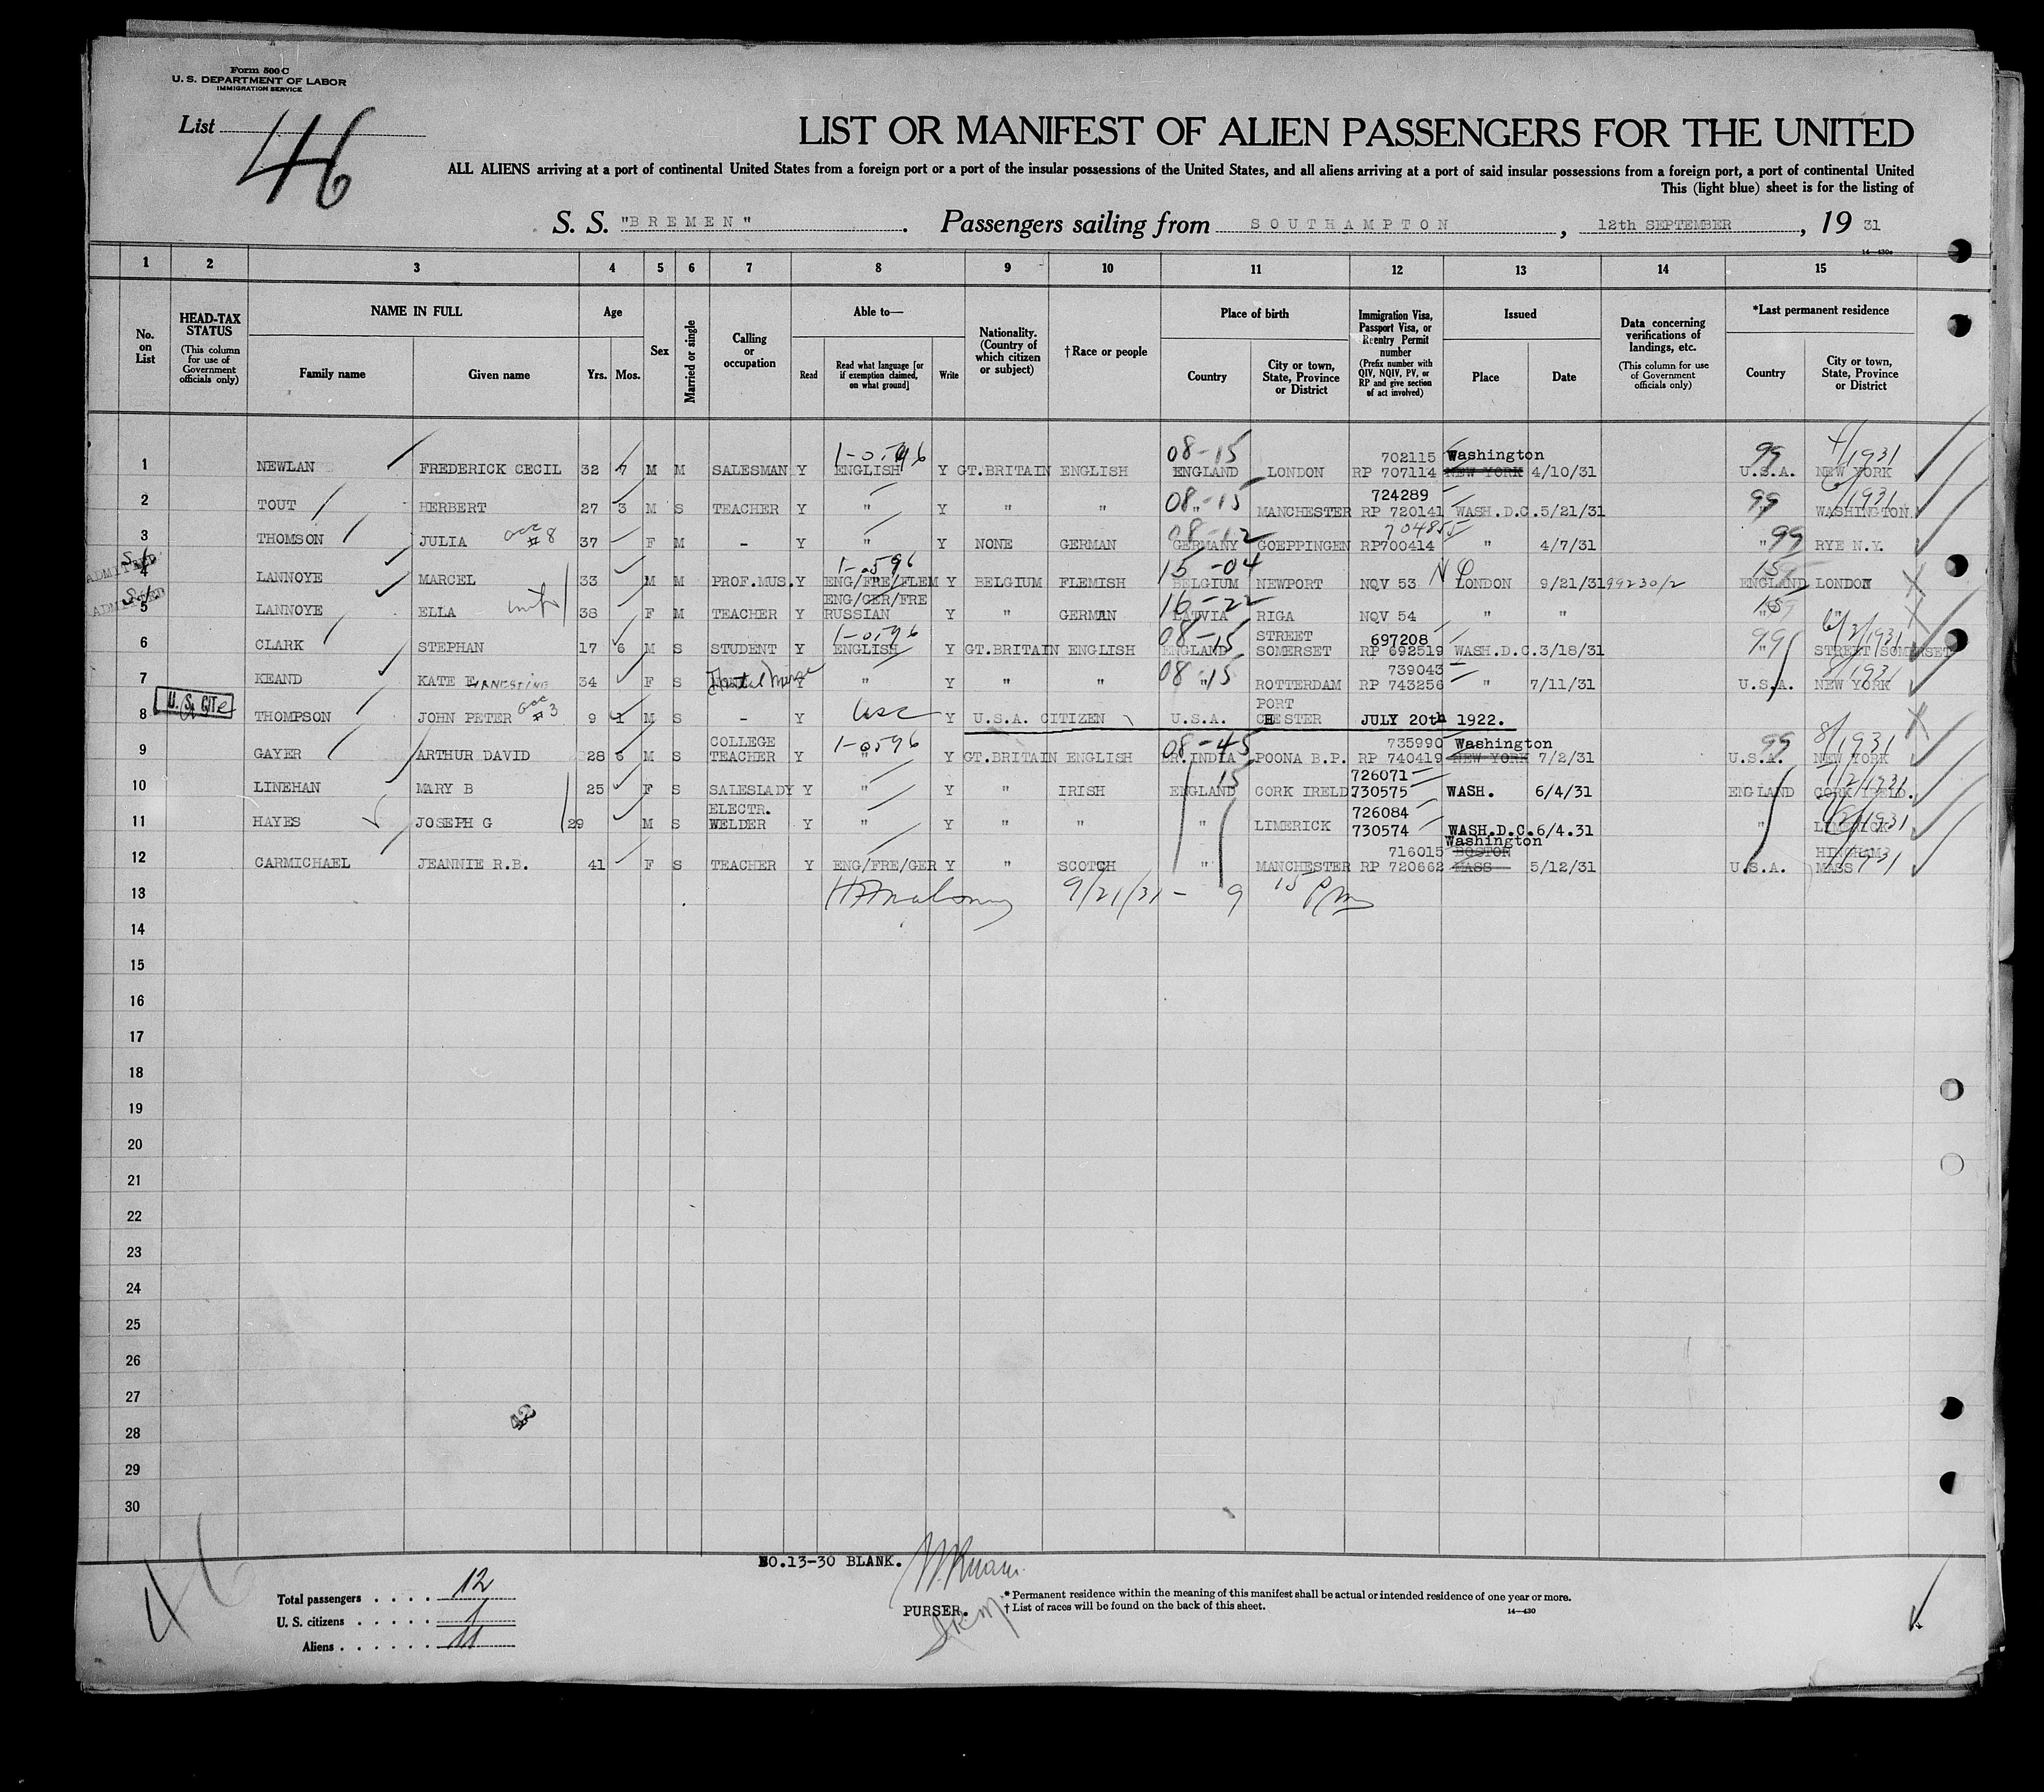 Form 500 C
U. S. DEPARTMENT OF LABOR
IMMIGRATION SERVICE
List 46
LIST OR MANIFEST OF ALIEN PASSENGERS FOR THE UNITED
ALL ALIENS arriving at a port of continental United States from a foreign port or a port of the insular possessions of the United States, and all aliens arriving at a port of said insular possessions from a foreign port, a port of continental United
This (light blue) sheet is for the listing of
S. S. "BREMEN". Passengers sailing from SOUTHAMPTON, 12th SEPTEMBER, 19 31
14—430a
1 2 3 4 5 6 7 8 9 10 11 12 13 14 15
No. on List
HEAD-TAX STATUS (This column for use of Government officials only)
NAME IN FULL
Family name Given name
Age
Yrs. Mos.
Sex
Married or single
Calling or occupation
Able to—
Read Read what language [or if exemption claimed, on what ground] Write
Nationality. (Country of which citizen or subject)
†Race or people
Place of birth
Country City or town, State, Province or District
Immigration Visa, Passport Visa, or Reentry Permit number (Prefix number with QIV, NQIV, PV, or RP and give section of act involved)
Issued
Place Date
Data concerning verifications of landings, etc. (This column for use of Government officials only)
*Last permanent residence
Country City or town, State, Province or District
1-0596 08-15 702115 Washington 99 4/1931
1 NEWLAN FREDERICK CECIL 32 7 M M SALESMAN Y ENGLISH Y GT.BRITAIN ENGLISH ENGLAND LONDON RP 707114 NEW YORK 4/10/31 U.S.A. NEW YORK
08-15 724289 99 6/1931
2 TOUT HERBERT 27 3 M S TEACHER Y " Y " " " MANCHESTER RP 720141 WASH.D.C. 5/21/31 " WASHINGTON
occ #8 08-12 704855 99
3 THOMSON JULIA 37 F M - Y " Y NONE GERMAN GERMANY GOEPPINGEN RP700414 " 4/7/31 " RYE N.Y.
ADMITTED 1-0596 15-04 15
4 LANNOYE MARCEL 33 M M PROF.MUS. Y ENG/FRE/FLEM Y BELGIUM FLEMISH BELGIUM NEWPORT NQV 53 LONDON 9/21/31 99230/2 ENGLAND LONDON
ADMITTED ENG/GER/FRE 16-22 15
5 LANNOYE ELLA 38 F M TEACHER Y RUSSIAN Y " GERMAN LATVIA RIGA NQV 54 " " " "
1-0596 08-15 STREET 697208 99 6/2/1931
6 CLARK STEPHAN 17 6 M S STUDENT Y ENGLISH Y GT.BRITAIN ENGLISH ENGLAND SOMERSET RP 692519 WASH.D.C. 3/18/31 " STREET SOMERSET
08-15 739043 8/1931
7 KEAND KATE ERNESTINE 34 F S Y " Y " " " ROTTERDAM RP 743256 " 7/11/31 U.S.A. NEW YORK
U.S. CITZ occ #3 usc PORT
8 THOMPSON JOHN PETER 9 1 M S - Y Y U.S.A. CITIZEN U.S.A. CHESTER JULY 20th 1922.
COLLEGE 1-0596 08-45 735990 Washington 99 8/1931
9 GAYER ARTHUR DAVID 28 6 M S TEACHER Y " Y GT.BRITAIN ENGLISH BR.INDIA POONA B.P. RP 740419 NEW YORK 7/2/31 U.S.A. NEW YORK
15 726071 7/2/1931
10 LINEHAN MARY B 25 F S SALESLADY Y " Y " IRISH ENGLAND CORK IRELD. 730575 WASH. 6/4/31 ENGLAND CORK IRELD.
ELECTR. 726084
11 HAYES JOSEPH G 29 M S WELDER Y " Y " " " LIMERICK 730574 WASH.D.C. 6/4.31 " LIMERICK
716015 Washington BOSTON HINGHAM
12 CARMICHAEL JEANNIE R.B. 41 F S TEACHER Y ENG/FRE/GER Y " SCOTCH " MANCHESTER RP 720662 MASS 5/12/31 U.S.A. MASS
13 9/21/31 - 9 15 P/m
14
15
16
17
18
19
20
21
22
23
24
25
26
27
28
29
30
42
46
NO.13-30 BLANK.
PURSER.
Total passengers 12
U. S. citizens 1
Aliens 11
* Permanent residence within the meaning of this manifest shall be actual or intended residence of one year or more.
† List of races will be found on the back of this sheet.
14—430